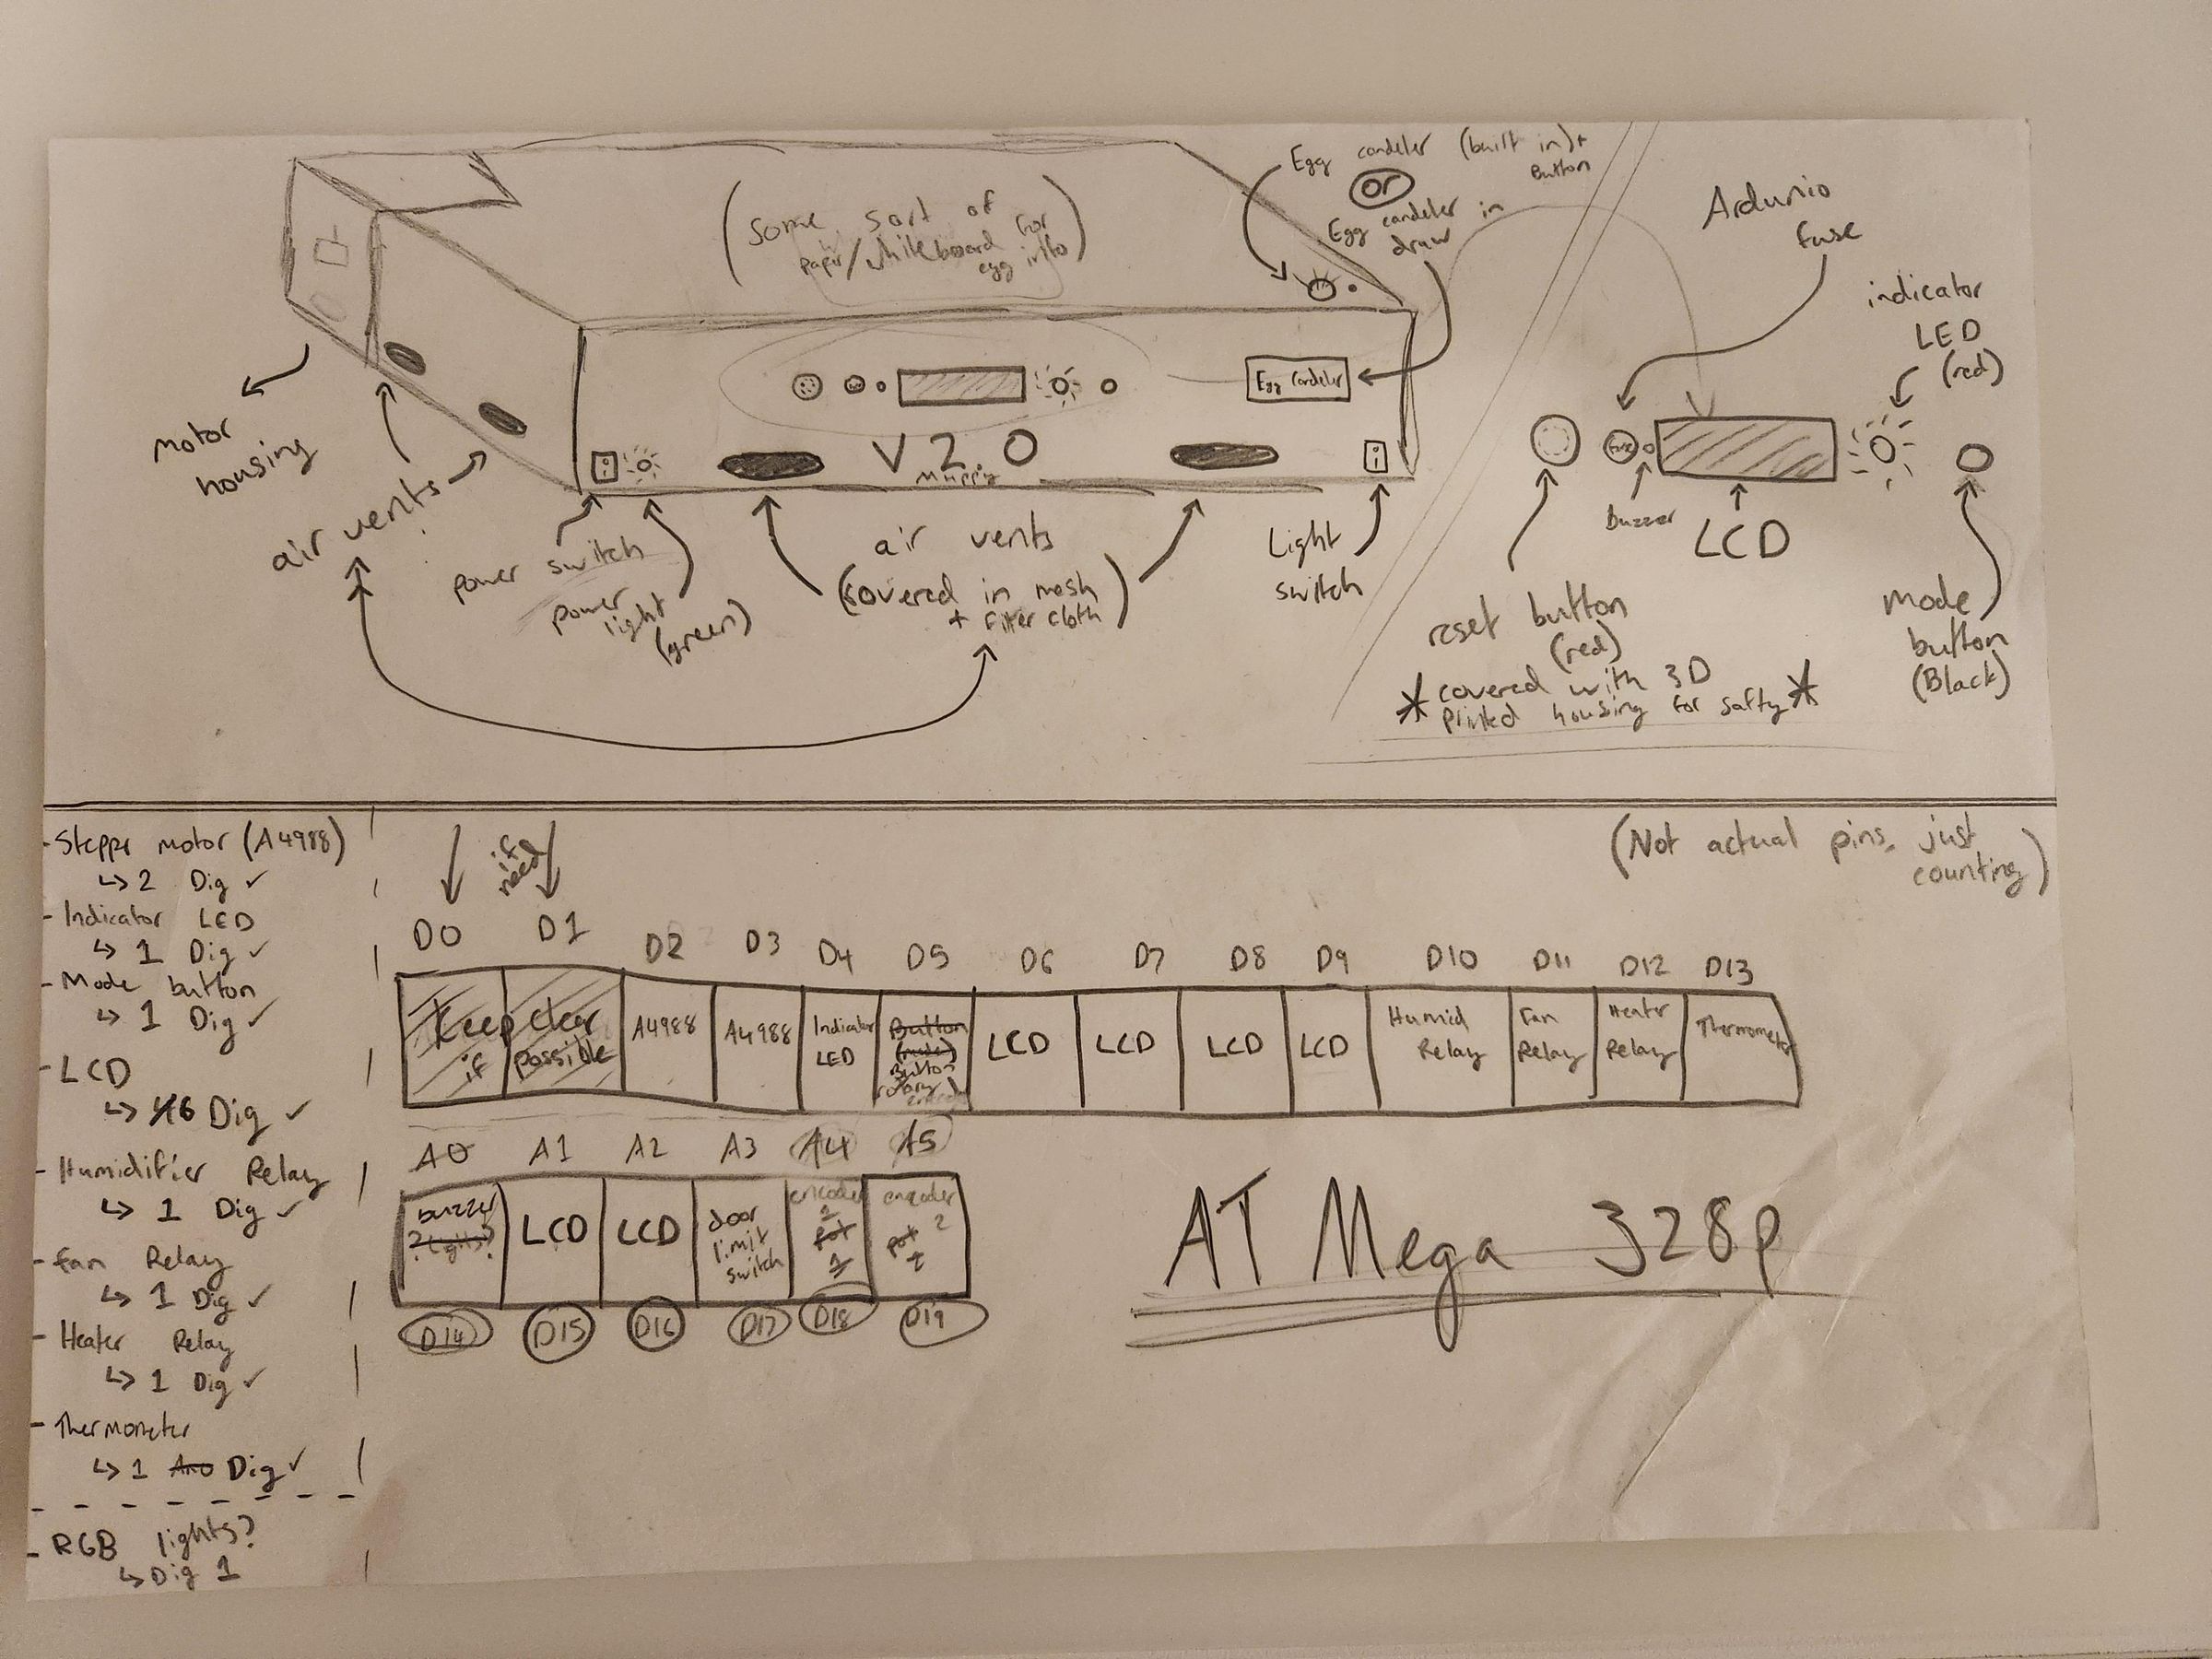 Egg candeler (built in) +
Button
or
Egg candeler in
draw
(Some sort of
paper/whiteboard for
egg info)
Ardunio
fuse
indicator
LED
(red)
Egg Candeler
V 2.0
motor
housing
air vents
power switch
power
light
(green)
air vents
(covered in mesh
+ filter cloth)
Light
switch
fuse
Buzzer
LCD
reset button
(red)
* covered with 3D
printed housing for safty *
mode
button
(Black)
- Steppr motor (A4988)
↳ 2 Dig ✓
- Indicator LED
↳ 1 Dig ✓
- Mode button
↳ 1 Dig ✓
- LCD
↳ 6 Dig ✓
- Humidifier Relay
↳ 1 Dig ✓
- Fan Relay
↳ 1 Dig ✓
- Heater Relay
↳ 1 Dig ✓
- Thermometer
↳ 1 Ano Dig ✓
- RGB lights?
↳ Dig 1
if
need
(Not actual pins, just
counting)
D0 D1 D2 D3 D4 D5 D6 D7 D8 D9 D10 D11 D12 D13
Keep clear
if possible
A4988
A4988
Indicator
LED
Button
(mode)
Button
rotary
encoder
LCD
LCD
LCD
LCD
Humid
Relay
Fan
Relay
Heater
Relay
Thermometer
A0 A1 A2 A3 A4 A5
buzzer
LCD
LCD
door
limit
switch
encoder
1
pot
1
encoder
2
pot
2
D14 D15 D16 D17 D18 D19
AT Mega 328p